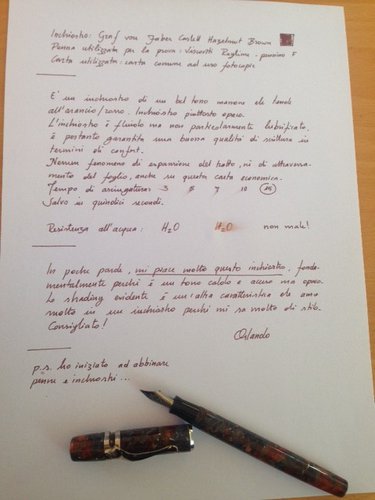 Inchiostro: Graf von Faber Castell Hazelnut Brown
Penna utilizzata per la prova: Visconti Ragtime - pennino F
Carta utilizzata: carta comune ad uso fotocopie
E' un inchiostro di un bel tono marrone che tende
all'arancio/rosso. Inchiostro piuttosto opaco.
L'inchiostro è fluido ma non particolarmente lubrificato,
è pertanto garantita una buona qualità di scrittura in
termini di confort.
Nessun fenomeno di espansione del tratto, nè di attraversa-
mento del foglio, anche su questa carta economica.
Tempo di asciugatura: 3 5 7 10 15
Salvo in quindici secondi.
Resistenza all'acqua: H2O H2O non male!
In poche parole, mi piace molto questo inchiostro, fonda-
mentalmente perchè è un tono caldo e acceso ma opaco.
Lo shading evidente è un'altra caratteristica che amo
molto in un inchiostro perchè mi sa molto di stilo.
Consigliato!
Orlando
p.s. ho iniziato ad abbinare
penne e inchiostri ...